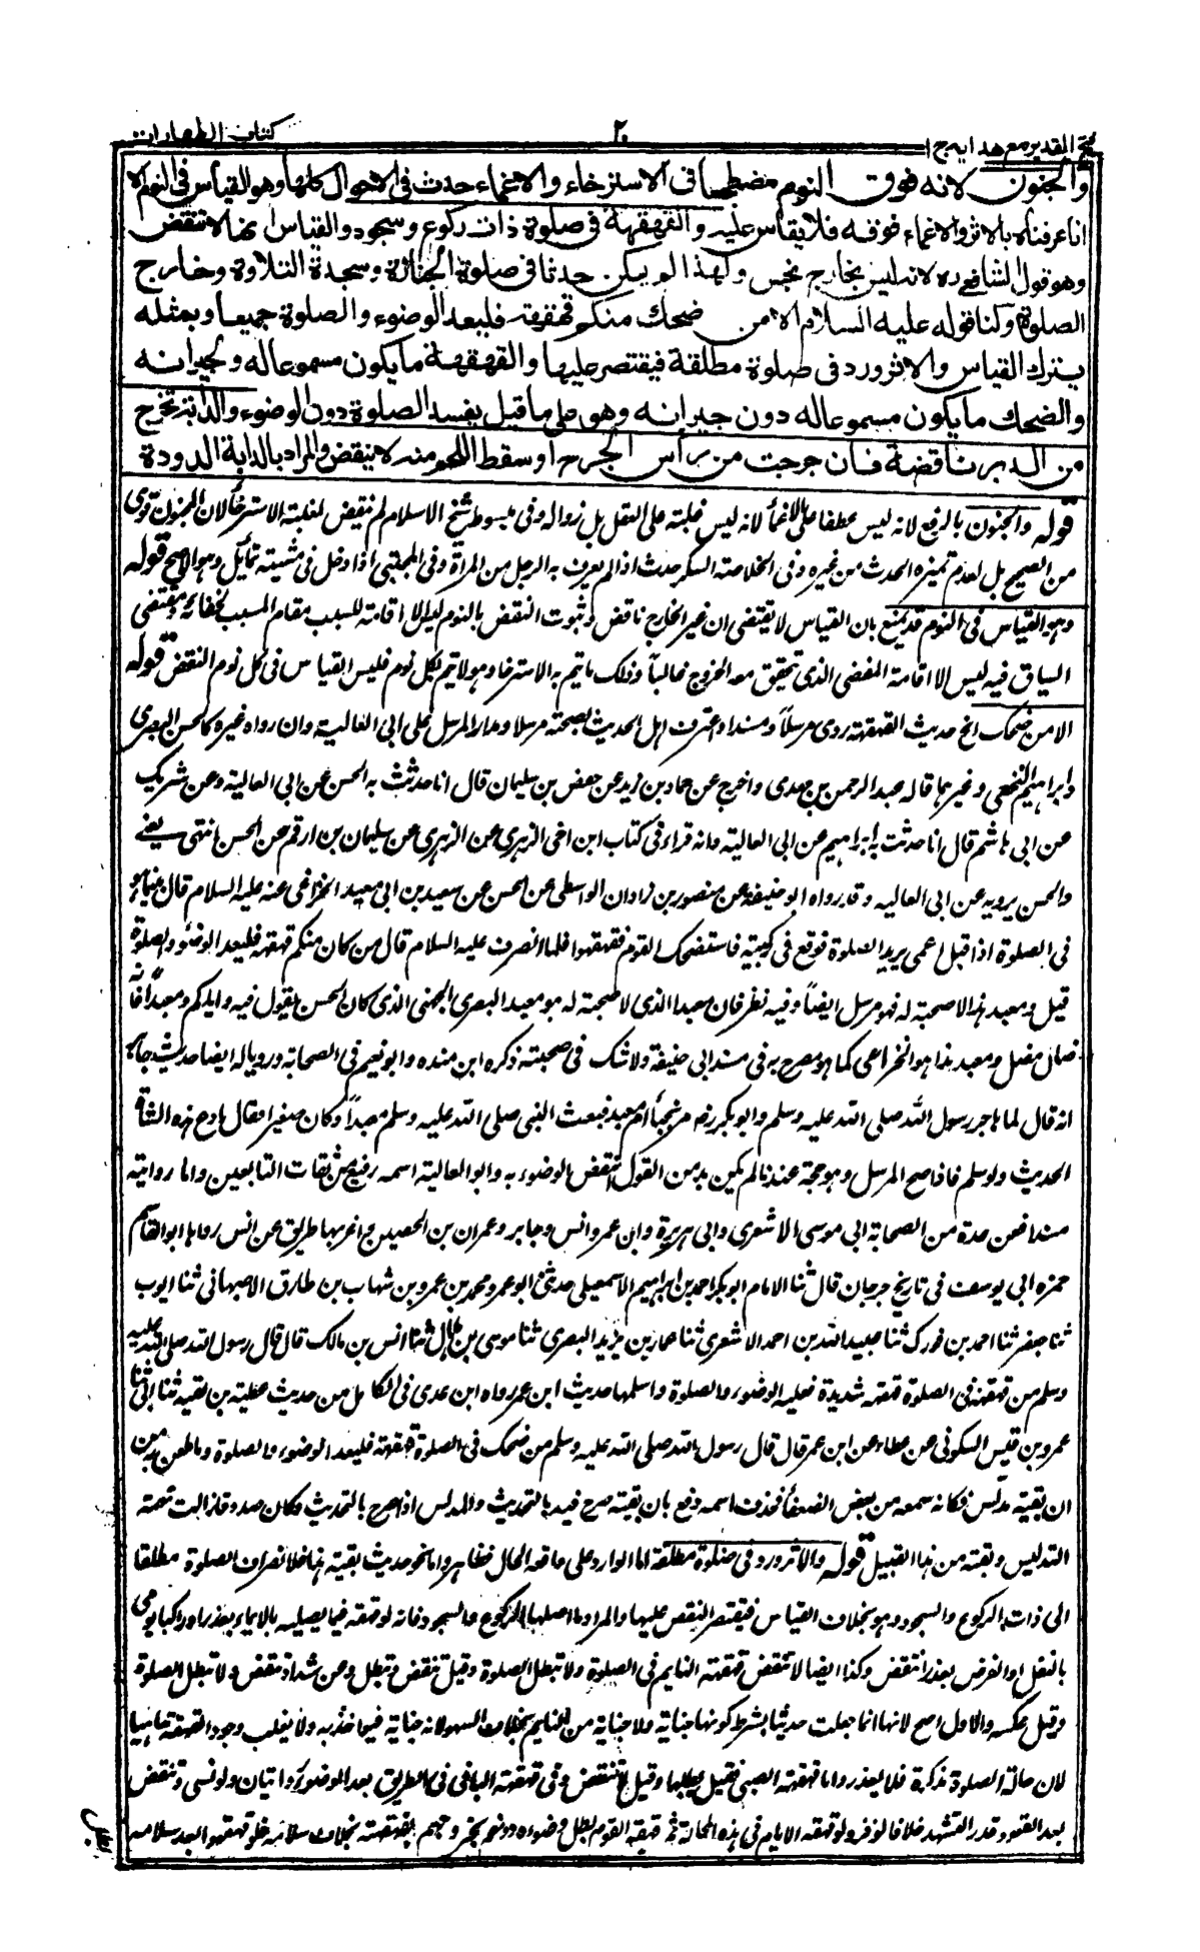 فتح القدير مع هدايه ج ا
٢٠
كتاب الطهارات
والجنون لانه فوق النوم مضطجعا فى الاسترخاء والاغماء حدث فى الاحوال كلها وهو القياس فى النوم الا
انا عرفناه بالاثر والاغماء فوقه فلا يقاس عليه والقهقهة فى صلوة ذات ركوع وسجود والقياس انها لا تنقض
وهو قول الشافعى ره لانه ليس بخارج نجس ولهذا لم يكن حدثا فى صلوة الجنازة وسجدة التلاوة وخارج
الصلوة ولنا قوله عليه السلام الا من ضحك منكم قهقهة فليعد الوضوء والصلوة جميعا وبمثله
يترك القياس والاثر ورد فى صلوة مطلقة فيقتصر عليها والقهقهة ما يكون مسموعا له ولجيرانه
والضحك ما يكون مسموعا له دون جيرانه وهو على ما قيل يفسد الصلوة دون الوضوء والدابة تخرج
من الدبر ناقضة فان خرجت من رأس الجرح او سقط اللحم منه لا ينقض والمراد بالدابة الدودة
قوله والجنون بالرفع لانه ليس عطفا على الاغماء لانه ليس غلبة على العقل بل زواله وفى مبسوط شيخ الاسلام لم ينقض لغلبة الاسترخاء لان المجنون قوى
من الصحيح بل لعدم تميزه الحدث من غيره وفى الخلاصة السكر حدث اذا لم يعرف به الرجل من المرأة وفى المجتبى اذا دخل فى مشيته تمايل وهو الاصح قوله
وهو القياس فى النوم قد يمنع بان القياس لا يقتضى ان غير الخارج ناقض وثبوت النقض بالنوم ليس الا اقامة للسبب مقام المسبب لخفائه ومقتضى
السياق فيه ليس الا اقامة المفضى الذى يتحقق معه الخروج غالبا وذلك ما يتم به الاسترخاء وهو لا يتم بكل نوم فليس القياس فى كل نوم النقض قوله
الا من ضحك الخ حديث القهقهة روى مرسلا ومسندا واعترف اهل الحديث بصحته مرسلا ومدار المرسل على ابى العالية وان رواه غيره كالحسن البصرى
وابراهيم النخعى وغيرهما قاله عبد الرحمن بن مهدى واخرج عن حماد بن زيد عن حفص بن سليمان قال انا حدثت به الحسن عن ابى العالية وعن شريك
عن ابى هاشم قال انا حدثت به ابراهيم عن ابى العالية وانه قراه فى كتاب ابن اخى الزهرى عن الزهرى عن سليمان بن ارقم عن الحسن انتهى يعنى
والحسن يرويه عن ابى العاليه وقد رواه ابو حنيفة عن منصور بن زاذان الواسطى عن الحسن عن معبد بن ابى معبد الخزاعى عنه عليه السلام قال بينما هو
فى الصلوة اذا قبل اعمى يريد الصلوة فوقع فى زبية فاستضحك القوم فقهقهوا فلما انصرف عليه السلام قال من كان منكم قهقه فليعد الوضوء والصلوة
قيل ومعبد هذا لا صحبة له فهو مرسل ايضا وفيه نظر فان معبدا الذى لا صحبة له هو معبد البصرى الجهنى الذى كان الحسن يقول فيه واياكم ومعبدا فانه
ضال مضل ومعبد هذا هو الخزاعى كما هو مصرح به فى مسند ابى حنيفة ولا شك فى صحبته ذكره ابن منده وابو نعيم فى الصحابة ورويا له ايضا حديث جابر
انه قال لما هاجر رسول الله صلى الله عليه وسلم وابو بكر رضه مر بخباء ام معبد فبعث النبى صلى الله عليه وسلم معبدا وكان صغيرا فقال ادع هذه الشاة
الحديث ولو سلم فاذا صح المرسل وهو حجة عندنا لم يكن بد من القول بنقض الوضوء به وابو العالية اسمه رفيع من ثقات التابعين واما روايته
مسندا فعن عدة من الصحابة ابى موسى الاشعرى وابى هريرة وابن عمر وانس وجابر وعمران بن الحصين واغربها طريق عن انس رواها ابو القاسم
حمزه ابى يوسف فى تاريخ جرجان قال ثنا الامام ابو بكر احمد بن ابراهيم الاسمعيلى حدثنى ابو عمرو محمد بن عمرو بن شهاب بن طارق الاصبهانى ثنا ايوب
ثنا جعفر ثنا احمد بن فورك ثنا عبيد الله بن احمد الاشعرى ثنا عمار بن يزيد البصرى ثنا موسى بن هلال ثنا انس بن مالك قال قال رسول الله صلى الله عليه
وسلم من قهقه فى الصلوة قهقهة شديدة فعليه الوضوء والصلوة واسلمها حديث ابن عمر رواه ابن عدى فى الكامل من حديث عطية بن بقية ثنا ابى ثنا
عمرو بن قيس السكونى عن عطاء عن ابن عمر قال قال رسول الله صلى الله عليه وسلم من ضحك فى الصلوة قهقهة فليعد الوضوء والصلوة وما طعن به من
ان بقية مدلس فكانه سمعه من بعض الضعفاء فحذف اسمه دفع بان بقية صرح فيه بالتحديث والمدلس اذا صرح بالتحديث وكان صدوقا زالت تهمة
التدليس وبقية من هذا القبيل قوله والاثر ورد فى صلوة مطلقة اما الوارد على واقعة الحال فظاهر واما نحو حديث بقية هذا فلانصراف الصلوة مطلقا
الى ذات الركوع والسجود وهو بخلاف القياس فيقتصر النقض عليها والمراد ما اصلها الركوع والسجود فانه لو قهقه فيما يصليه بالايماء بعذر او راكبا يومى
بالنفل او الفرض بعذر انتقض وكذا ايضا لا تنقض قهقهة النايم فى الصلوة ولا تبطل الصلوة وقيل تنقض وتبطل وعن شداد تنقض ولا تبطل الصلوة
وقيل بعكسه والاول اصح لانها انما جعلت حدثا بشرط كونها جناية ولا جناية من النايم بخلاف السهو لانه جناية فيواخذ به ولا يغلب وجود القهقهة ساهيا
لان حالة الصلوة مذكرة فلا يعذر واما قهقهة الصبى فقيل يبطلها وقيل لا تنقض وفى قهقهة البانى فى الطريق بعد الوضوء روايتان ولو نسى وتنقض
بعد القعود قدر التشهد خلافا لزفر ولو قهقه الامام فى هذه الحالة ثم قهقه القوم بطل وضوءه دونهم لخروجهم بقهقهته بخلاف سلامه فلو قهقهوا بعد سلامه
بطل